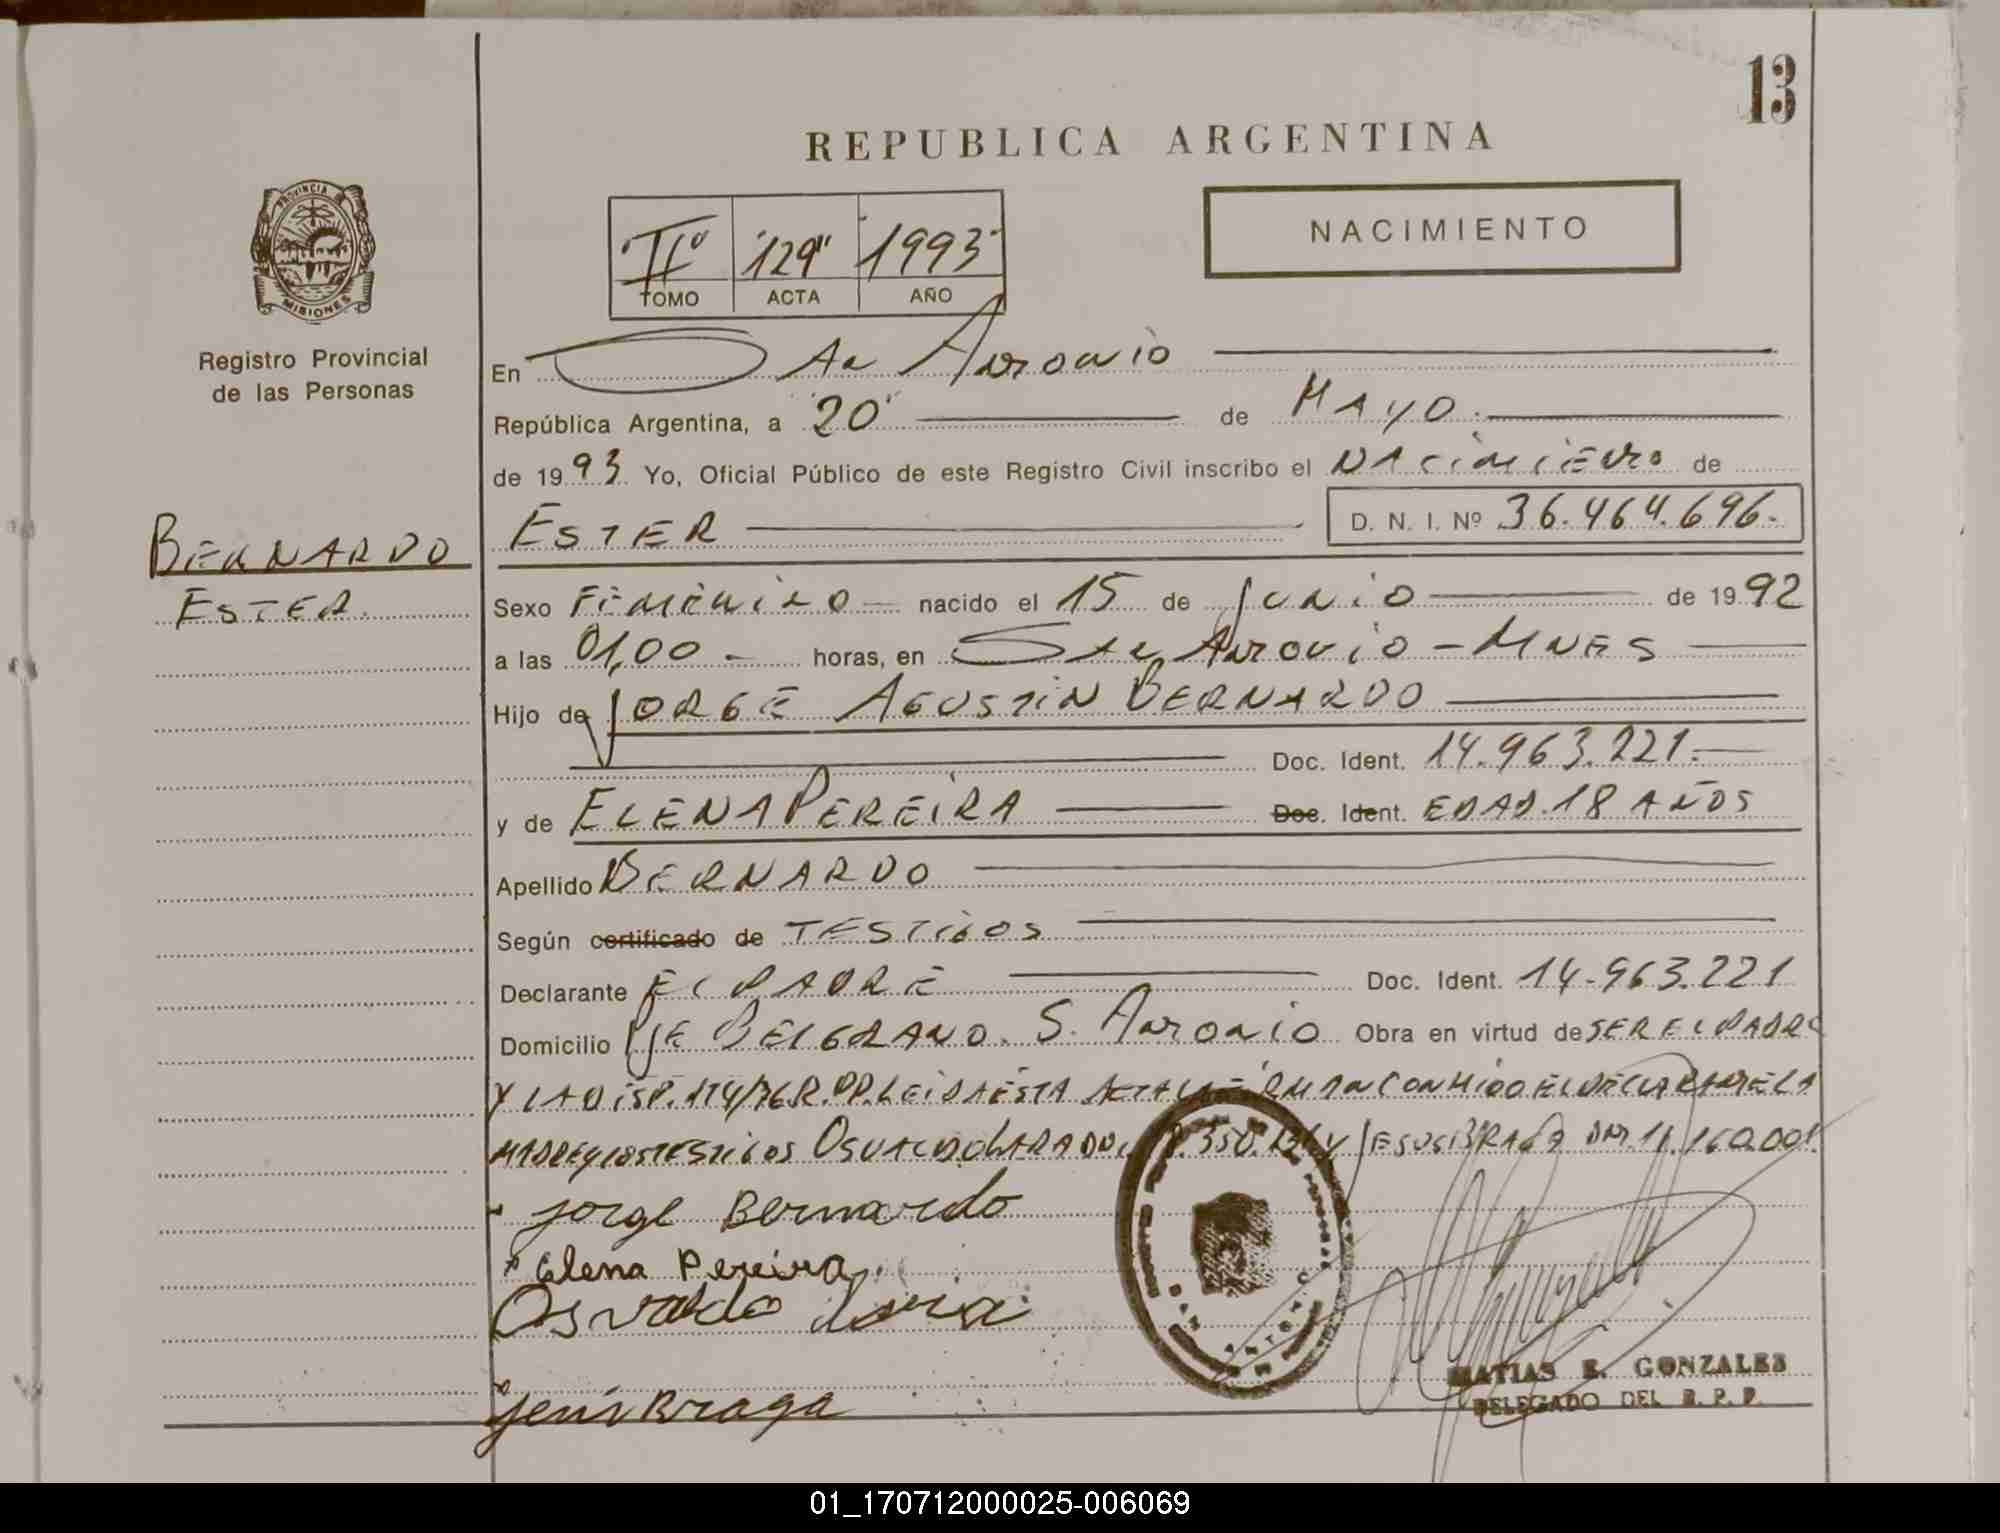 13
REPUBLICA ARGENTINA
NACIMIENTO
"IIº "129" "1993"
TOMO ACTA AÑO
PROVINCIA
MISIONES
Registro Provincial
de las Personas
En San Antonio
República Argentina, a 20 de MAYO.
de 1993 Yo, Oficial Público de este Registro Civil inscribo el NACIMIENTO de
ESTER D. N. I. Nº 36.464.696.
BERNARDO
ESTER.
Sexo FEMENINO nacido el 15 de JUNIO de 1992
a las 01,00 horas, en San Antonio - MNES
Hijo de JORGE AGUSTIN BERNARDO
Doc. Ident. 14.963.221.
y de ELENA PEREIRA Doc. Ident. EDAD.18 AÑOS
Apellido BERNARDO
Según certificado de TESTIGOS
Declarante EL PADRE Doc. Ident. 14.963.221
Domicilio PJE BELGRANO. S. ANTONIO Obra en virtud de SER EL PADRE
Y LA DISP. 114/76 R.PP. LEIDA ESTA ACTA LA FIRMAN CONMIGO EL DECLARANTE LA
MADRE Y LOS TESTIGOS OSVALDO LARA Y JESUS BRAGA DNI. 11.160.001.
Jorge Bernardo
Elena Pereira
Osvaldo
Jesús Braga
SAN ANTONIO
MATIAS E. GONZALES
DELEGADO DEL R. P. P.
01_170712000025-006069